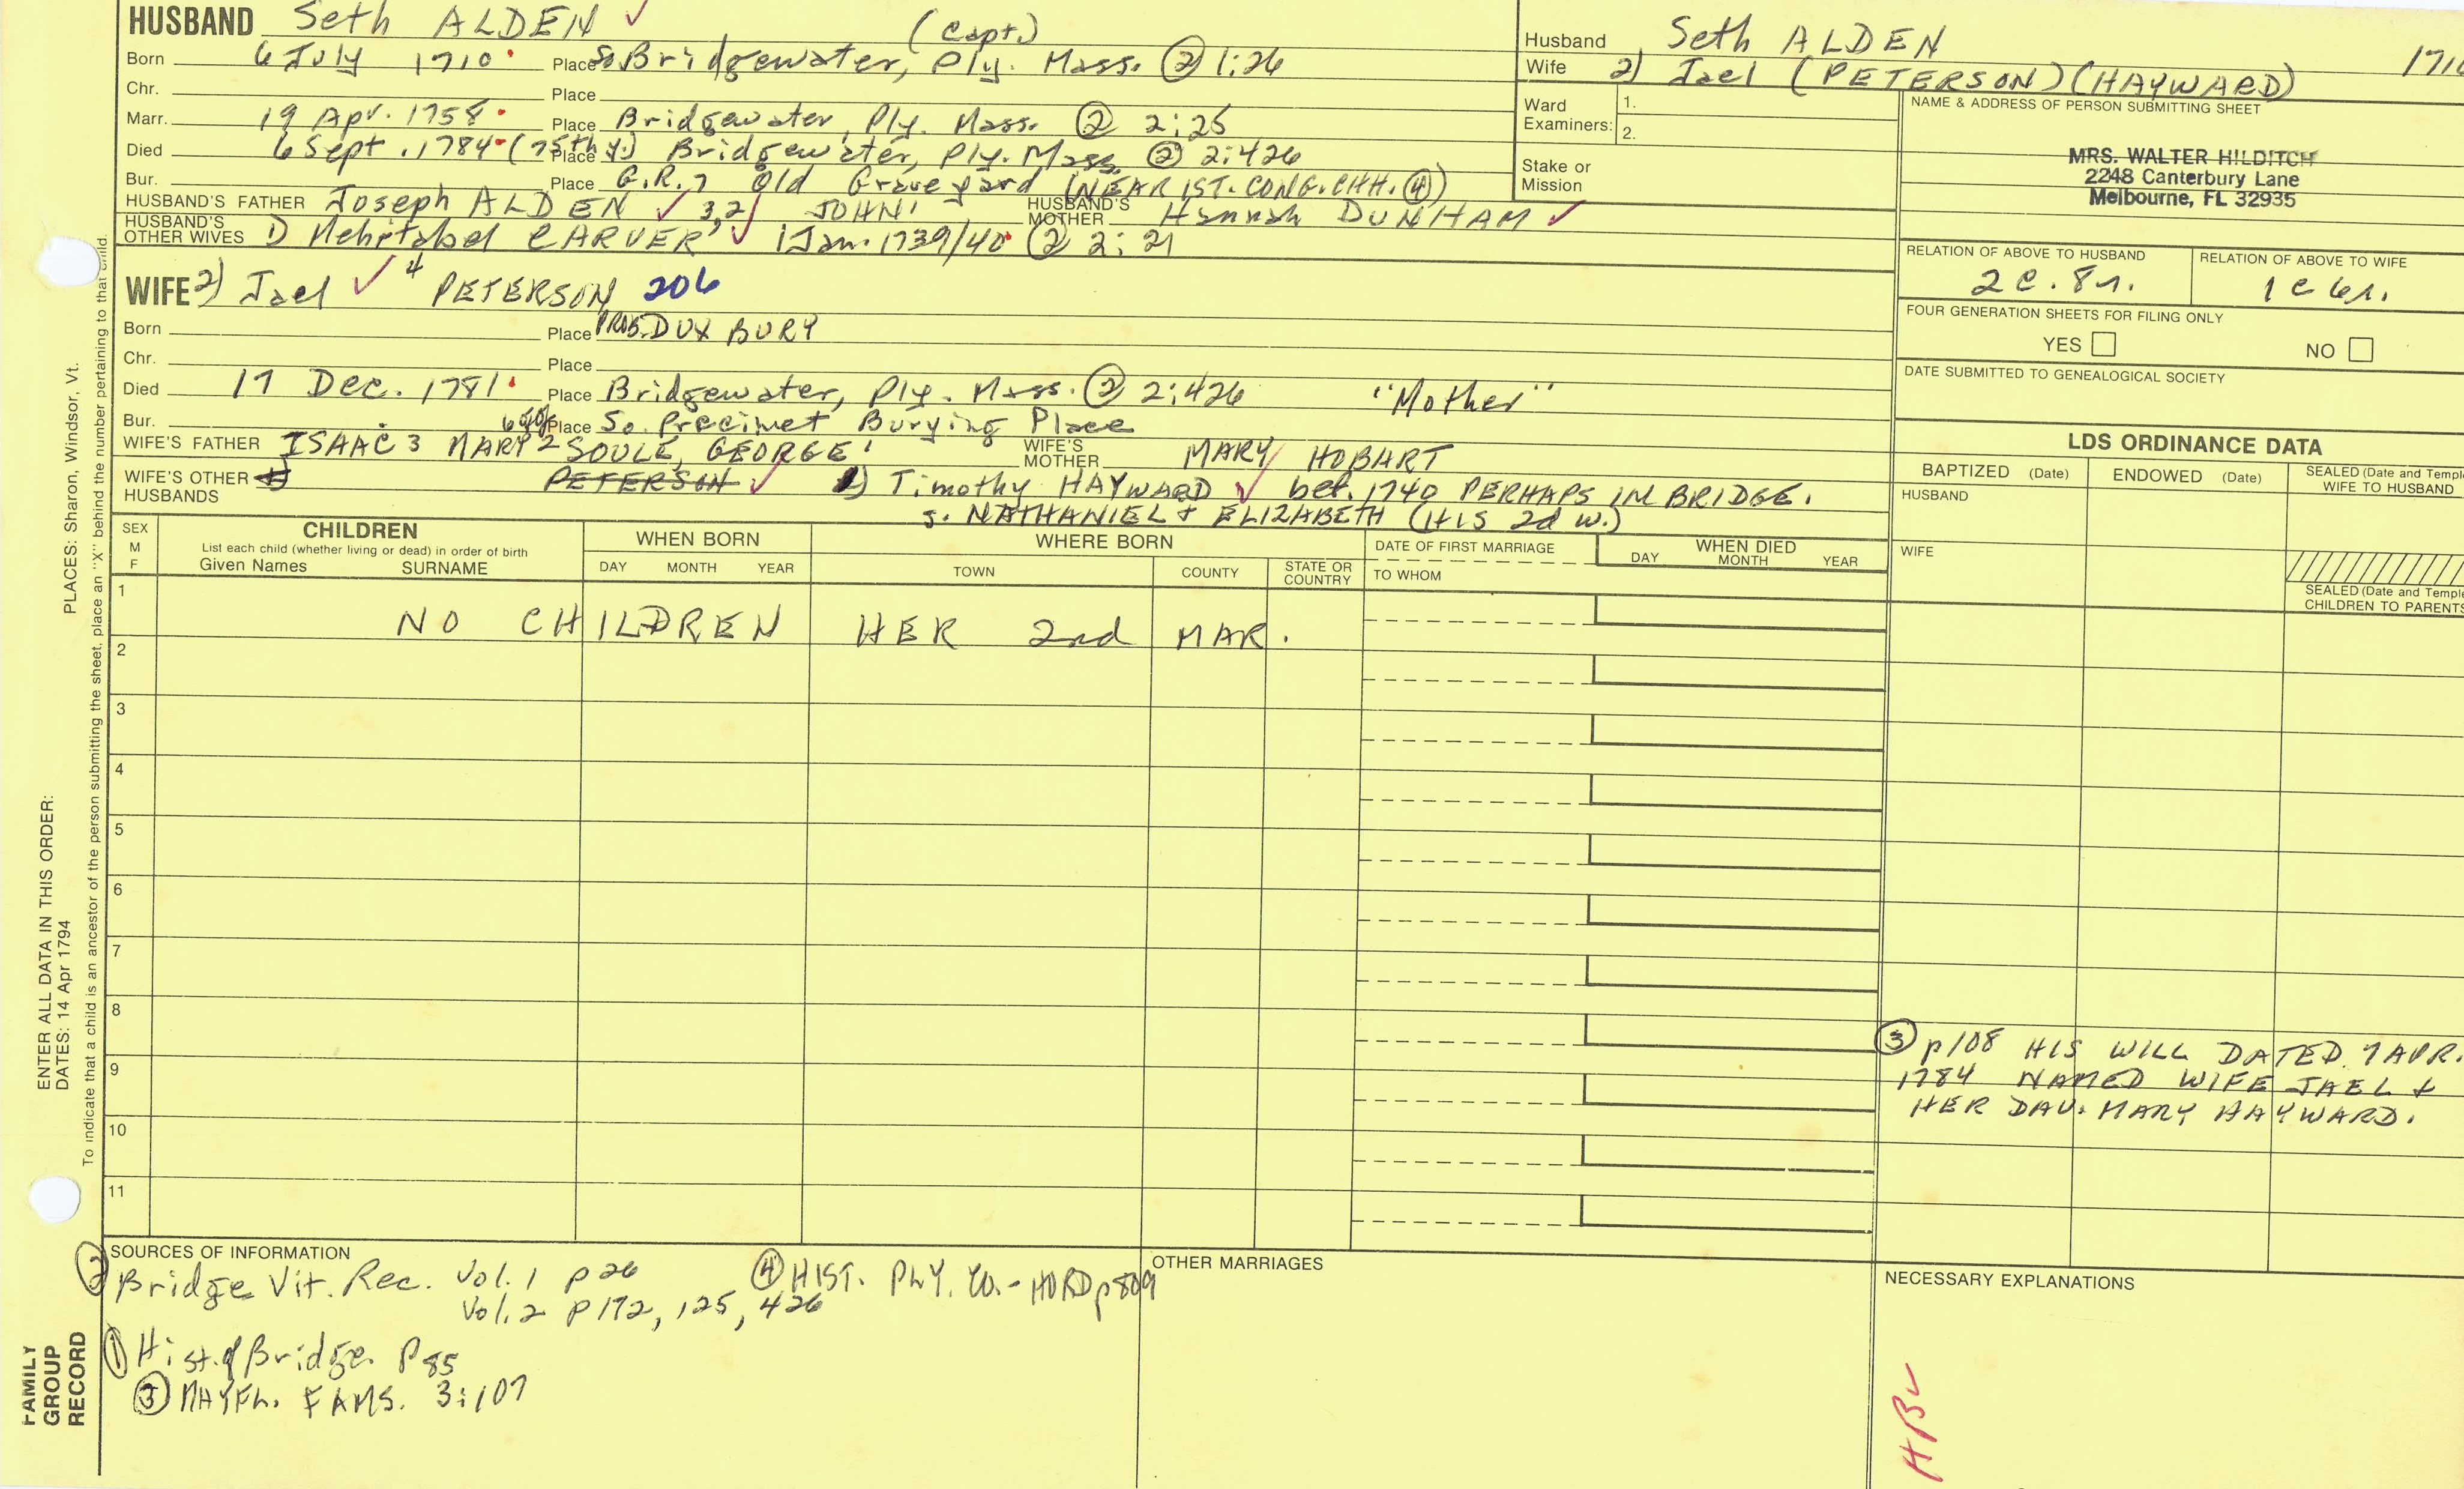 HUSBAND Seth ALDEN ✓ (Capt.)
Born 6 July 1710 Place So Bridgewater, Ply. Mass. ② 1:26
Chr. Place
Marr. 19 Apr. 1758 Place Bridgewater, Ply. Mass. ② 2:25
Died 6 Sept. 1784 (75th y.) Place Bridgewater, Ply. Mass. ② 2:426
Bur. Place G.R.7 Old Graveyard (NEAR 1ST. CONG. CHH. ④)
HUSBAND'S FATHER Joseph ALDEN ✓ 3,2 JOHN1 HUSBAND'S MOTHER Hannah DUNHAM ✓
HUSBAND'S OTHER WIVES 1) Mehitabel CARVER ✓ 1 Jan. 1739/40 ② 2:21
WIFE 2) Jael ✓ 4 PETERSON 206
Born Place PROB. DUXBURY
Chr. Place
Died 17 Dec. 1781 Place Bridgewater, Ply. Mass. ② 2:426 "Mother"
Bur. Place So. Precinct Burying Place
WIFE'S FATHER ISAAC 3 MARY 2 SOULE, GEORGE1 WIFE'S MOTHER MARY HOBART
WIFE'S OTHER HUSBANDS PETERSON ✓ 1) Timothy HAYWARD ✓ bef. 1740 PERHAPS IN BRIDGE.
s. NATHANIEL + ELIZABETH (HIS 2d w.)
Husband Seth ALDEN
Wife 2) Jael (PETERSON) (HAYWARD) 171
Ward Examiners: 1.
2.
Stake or Mission
NAME & ADDRESS OF PERSON SUBMITTING SHEET
MRS. WALTER HILDITCH
2248 Canterbury Lane
Melbourne, FL 32935
RELATION OF ABOVE TO HUSBAND RELATION OF ABOVE TO WIFE
2c. 8r. 1c 6r.
FOUR GENERATION SHEETS FOR FILING ONLY
YES NO
DATE SUBMITTED TO GENEALOGICAL SOCIETY
LDS ORDINANCE DATA
BAPTIZED (Date) ENDOWED (Date) SEALED (Date and Temple
WIFE TO HUSBAND
HUSBAND
WIFE
SEALED (Date and Temple
CHILDREN TO PARENTS
SEX
M
F
CHILDREN
List each child (whether living or dead) in order of birth
Given Names SURNAME
WHEN BORN
DAY MONTH YEAR
WHERE BORN
TOWN COUNTY STATE OR COUNTRY
DATE OF FIRST MARRIAGE
TO WHOM
WHEN DIED
DAY MONTH YEAR
1 NO CHILDREN HER 2nd MAR.
2
3
4
5
6
7
8
9
10
11
③ p108 HIS WILL DATED 7 APR.
1784 NAMED WIFE JAEL +
HER DAU. MARY HAYWARD.
SOURCES OF INFORMATION
② Bridge Vit. Rec. Vol. 1 p 26
Vol. 2 p 172, 125, 426
④ HIST. PLY. CO. - HURD p 809
① Hist. of Bridge. P 85
③ MAYFL. FAMS. 3:107
OTHER MARRIAGES
NECESSARY EXPLANATIONS
PLACES: Sharon, Windsor, Vt.
ENTER ALL DATA IN THIS ORDER:
DATES: 14 Apr 1794
To indicate that a child is an ancestor of the person submitting the sheet, place an "X" behind the number pertaining to that child.
FAMILY
GROUP
RECORD